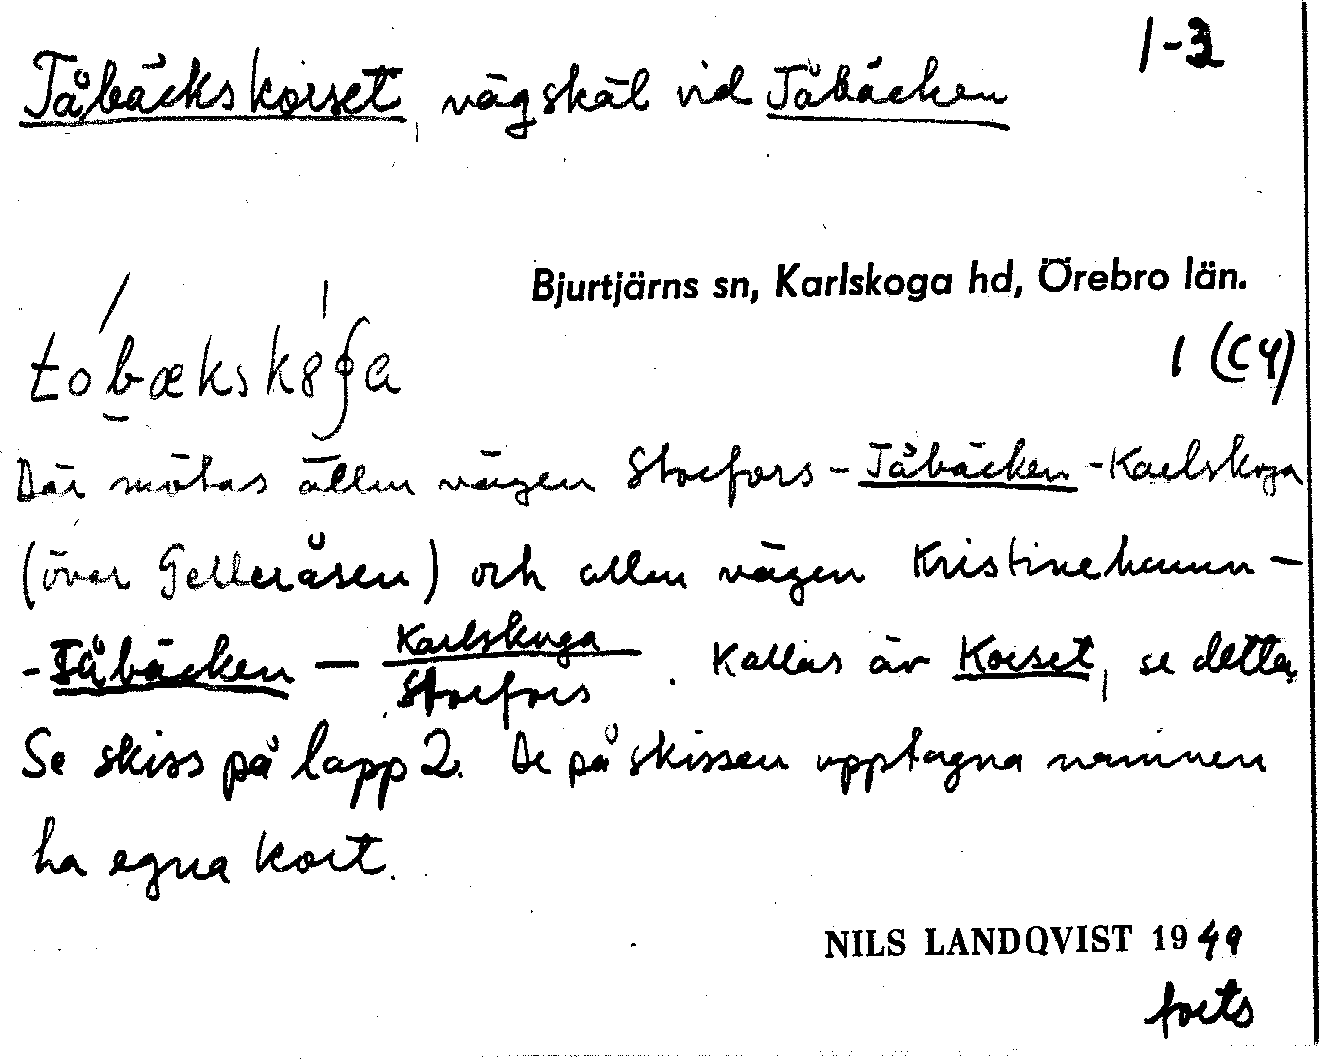 1-3
Tåbäckskorset, vägskäl vid Tåbäcken
Bjurtjärns sn, Karlskoga hd, Örebro län.
1 (C4)
Där mötas allm vägen Storfors - Tåbäcken - Karlskoga
(över Gelleråsen) och allm vägen Kristinehamn -
- Tåbäcken — Karlskoga
Storfors . Kallas äv Korset, se detta,
Se skiss på lapp 2. De på skissen upptagna namnen
ha egna kort.
NILS LANDQVIST 1949
forts